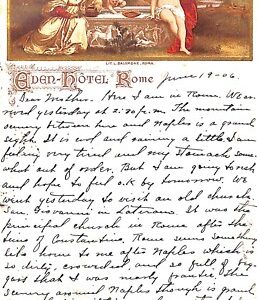 LIT. L. SALOMONE, ROMA.
EDEN-HÔTEL ROME
June 19-06.
Dear Mother. Here I am in Rome. We ar
rived yesterday at 2:30 P.M. The mountain
scenery between here and Naples is a grand
sight. It is cool and raining a little. I am
feeling very tired and my stomach some
what out of order. But I am going to rest
and hope to feel O.K. by tomorrow. We
went yesterday to visit an old church
San. Giovanni in Laterano. It was the
principal church in Rome after the
time of Constantine. Rome seems something
like home to me after Naples which
so dirty, crowded, and so full of
gars that I was nearly frantic. The
scenery around Naples though is grand